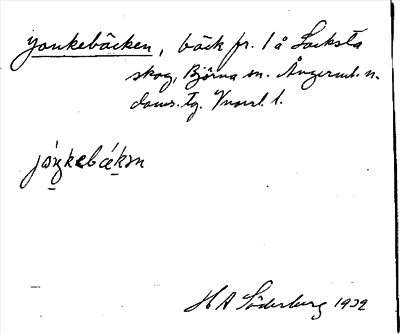 Yonkebäcken, bäck fr. l å Locksta
skog, Björna sn. Ångerml. n.
doms. tg.
jǫ́ŋkebǽkən
H A Söderberg 1932